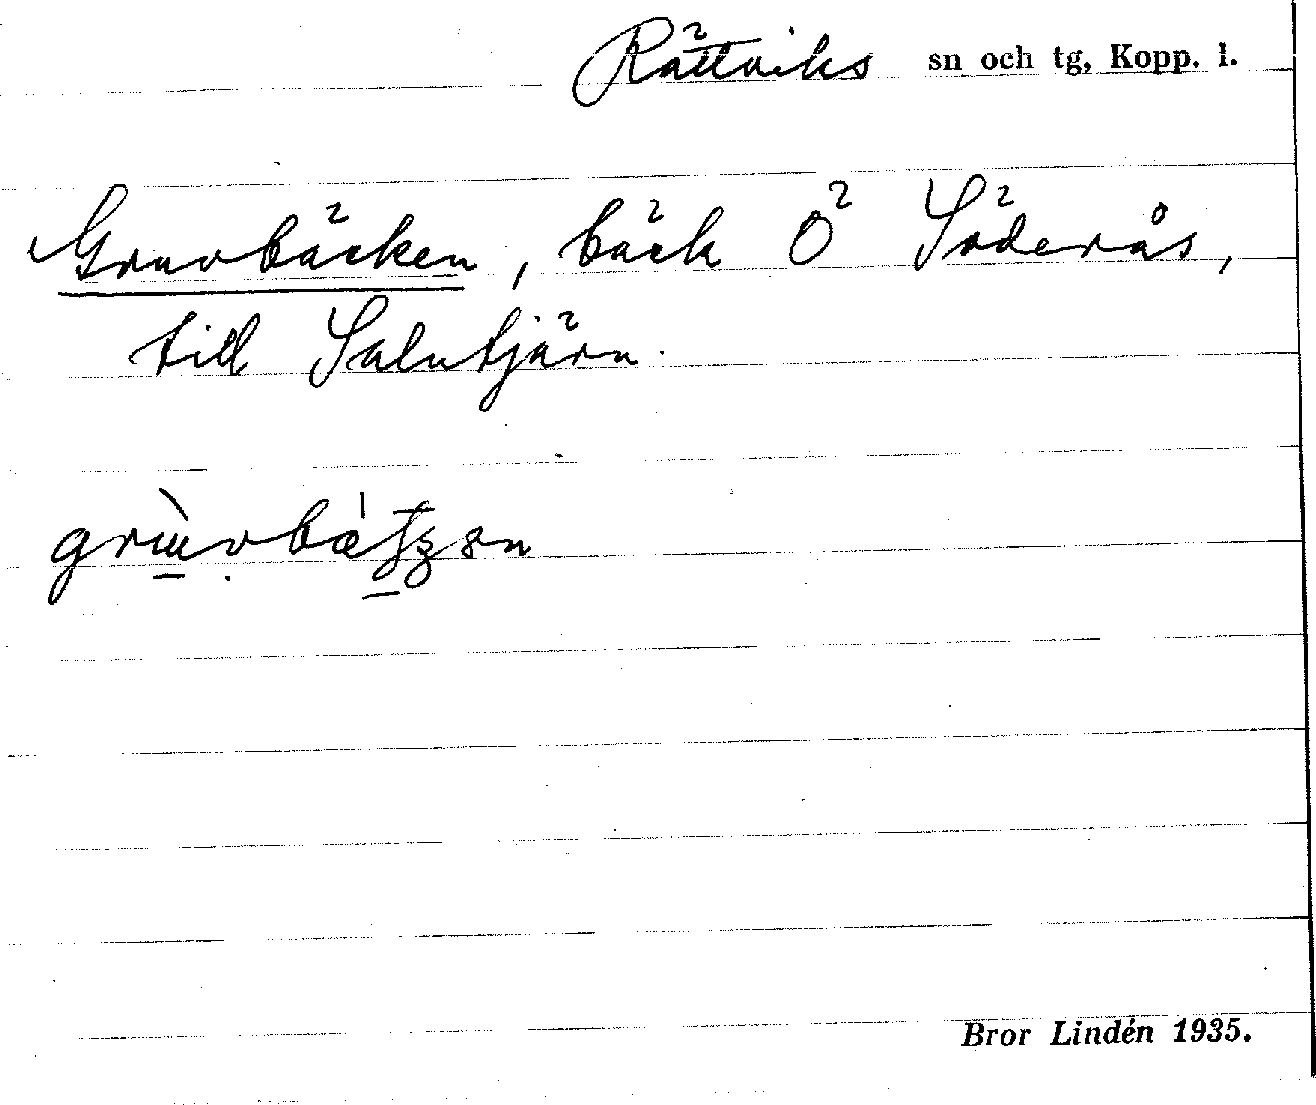 Rättviks sn och tg, Kopp. l.
Gruvbäcken, bäck Ö Söderås,
till Salutjärn.
Bror Lindén 1935.